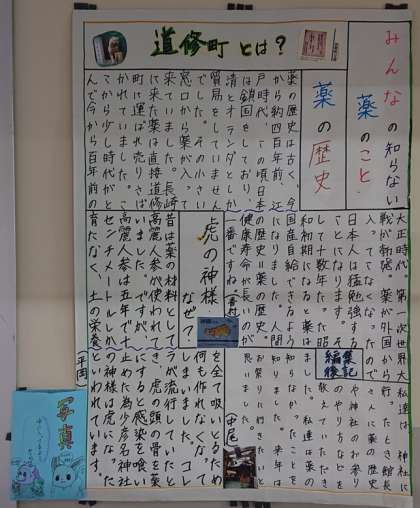 みんなの知らない
薬のこと
道修町とは?
薬の歴史
薬の歴史は古く、今
から約四百年前、江
戸時代。この頃日本
は鎖国をしており、
清とオランダとしか
貿易をしていません
でした。その小さい
窓口から薬が入って
来ていました。長崎
に来た薬は直接道修
町に運ばれ売りさば
かれていました。こ
こから少し時代がと
んで今から百年前の
大正時代。第一次世界大
戦が勃発。薬が外国から
入ってこなくなったので
日本人は猛勉強する
ことになります。そ
して十数年たった昭
和初期になると薬は
国産自給できるよう
になりました。人間
の歴史=薬の歴史。
健康寿命が長いのが
一番ですね。
虎の神様
なぜ?
昔は薬の材料として
高麗人参が使われて
いました。ですが、
高麗人参は五年で十
センチメートルしか
育たなく、土の栄養
を全て吸いとるため
何も作れなくなって
しまいました。コレ
ラが流行していたと
き、虎の頭の骨を薬
にすると感染を喰い
止めた為少彦名神社
の神様は虎になった
といわれています。
(平岡)
編集後記
私達は、神社に
行ったとき館長
さんに薬の歴史
や神社のお参り
のやり方などを
教えていただき
ました。私達は薬の
知らなかったことを
知りました。来年は
お祭りに行きたいと
思いました。
(中尾)
写真